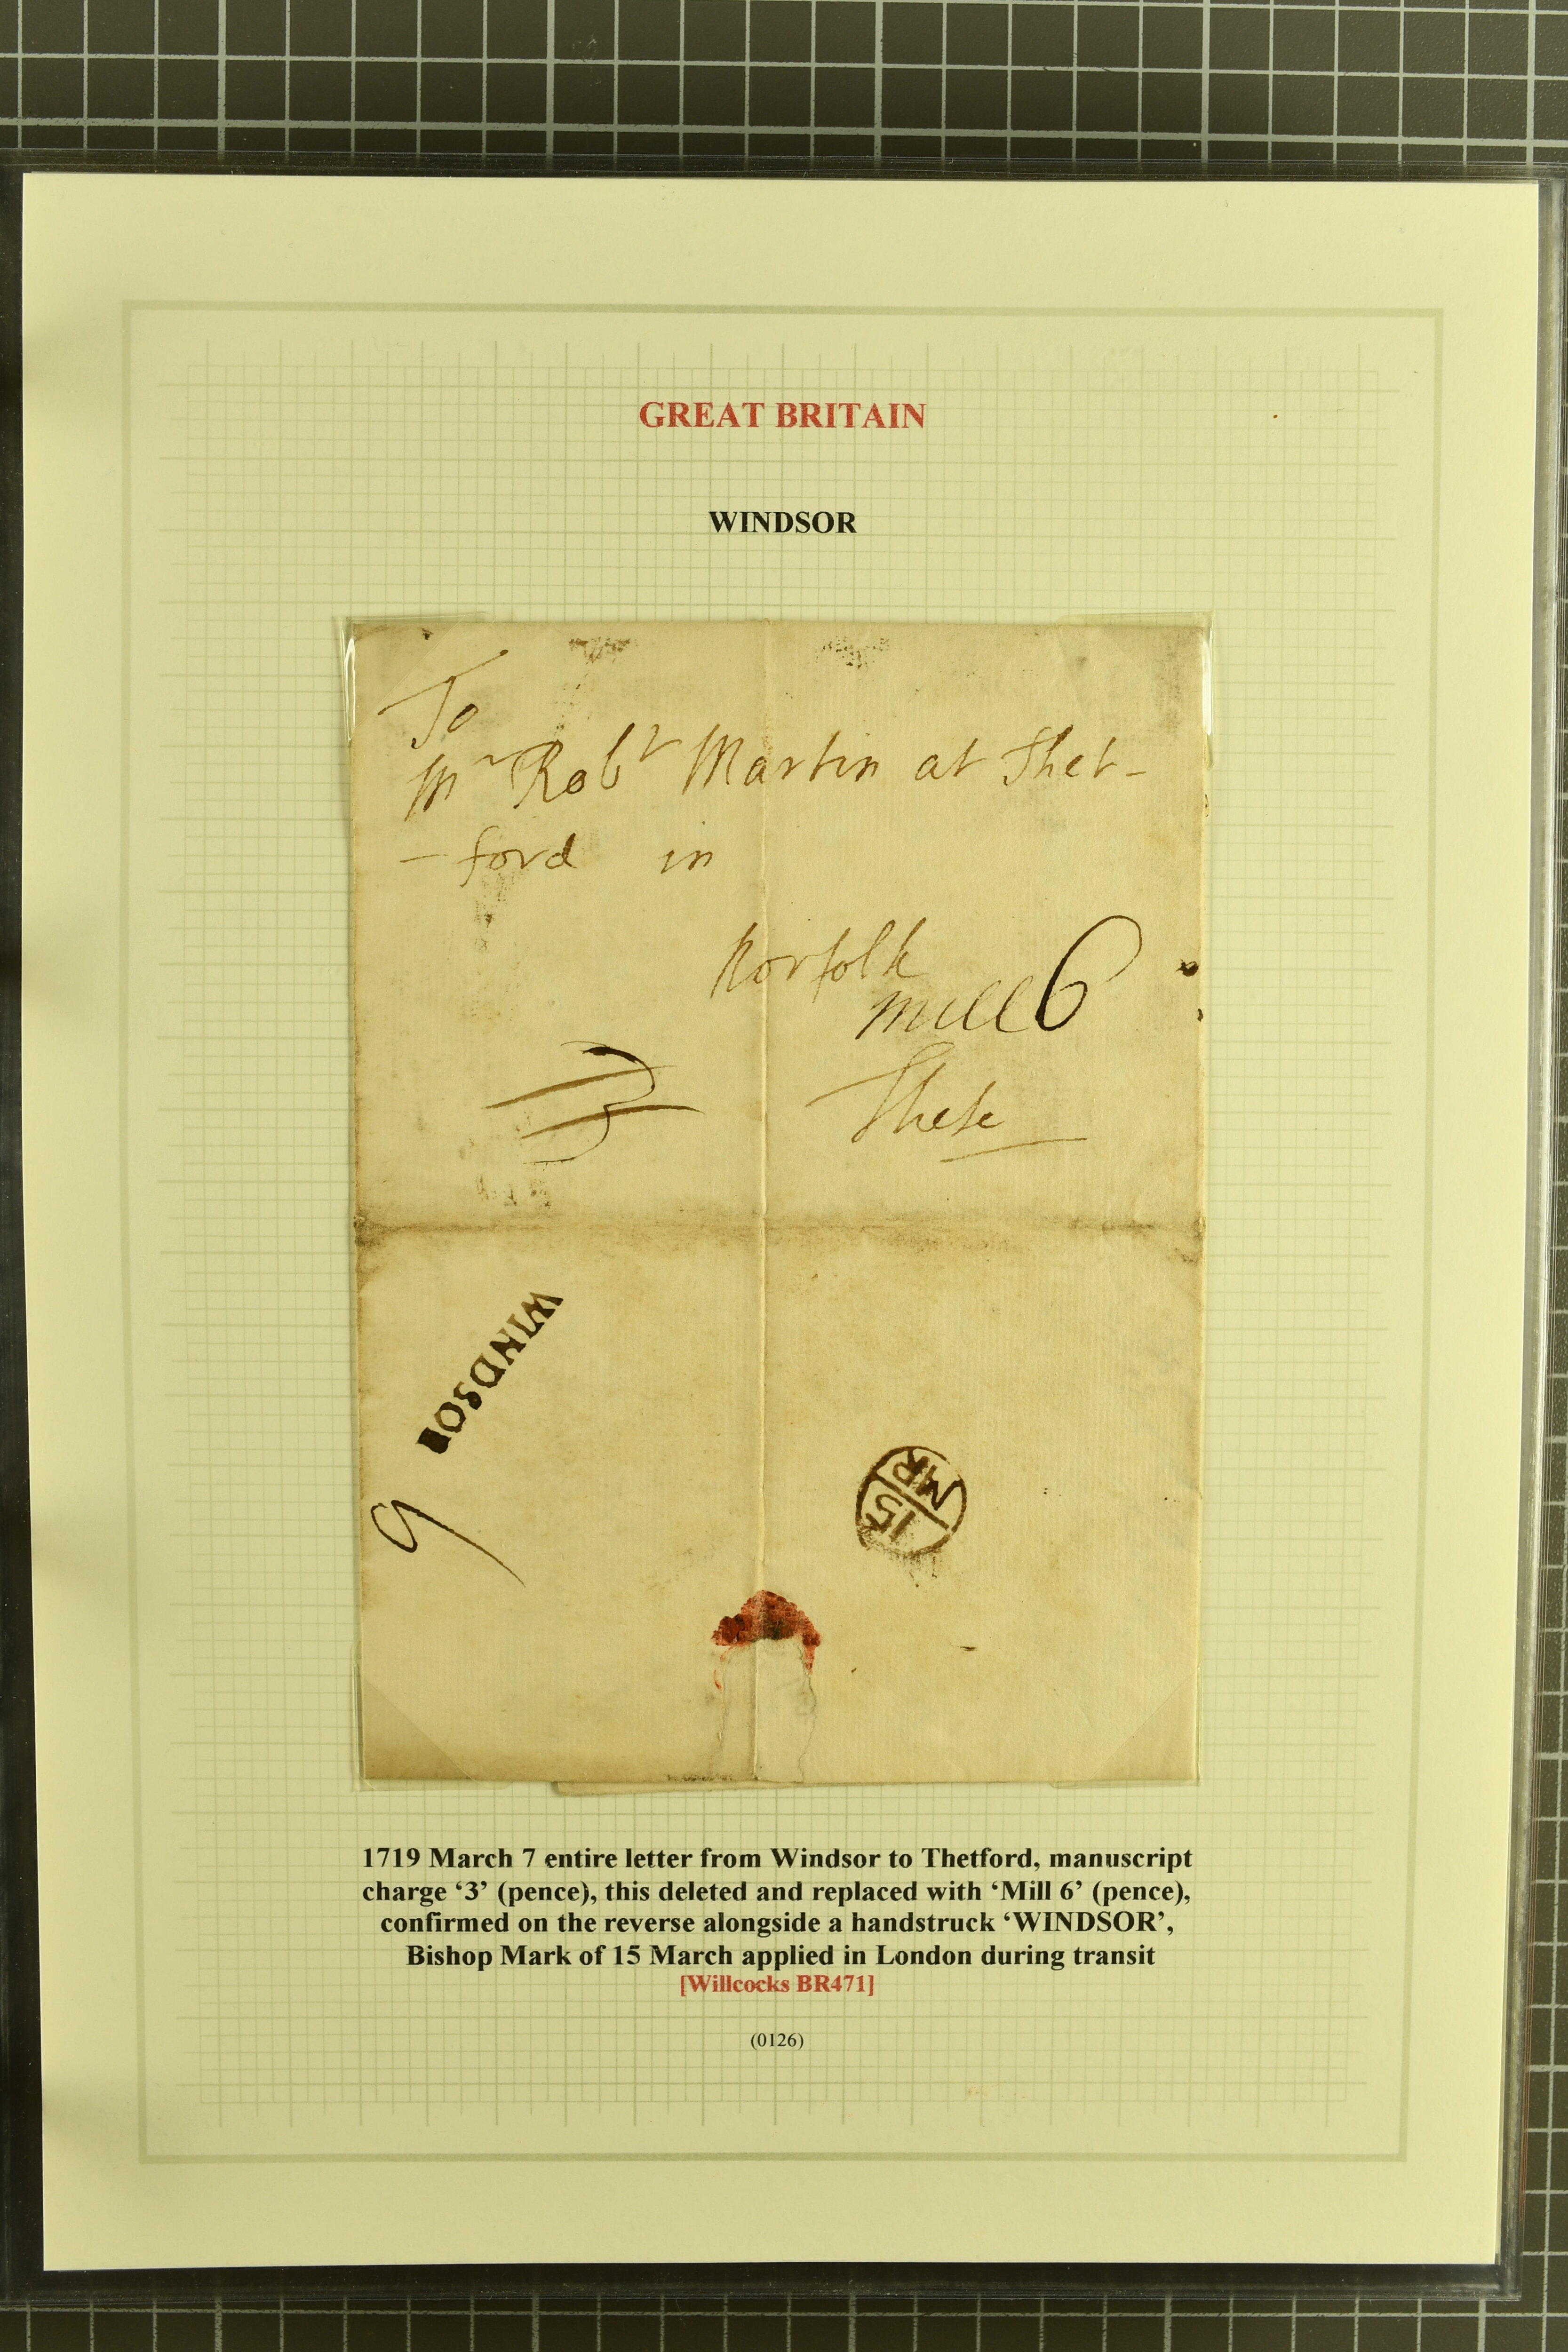 GREAT BRITAIN
WINDSOR
To
Mr Robt Martin at Thet-
- ford in
Norfolk
Mill 6
3
Thetf
WINDSOR
6
15
MR
1719 March 7 entire letter from Windsor to Thetford, manuscript
charge ‘3’ (pence), this deleted and replaced with ‘Mill 6’ (pence),
confirmed on the reverse alongside a handstruck ‘WINDSOR’,
Bishop Mark of 15 March applied in London during transit
[Willcocks BR471]
(0126)